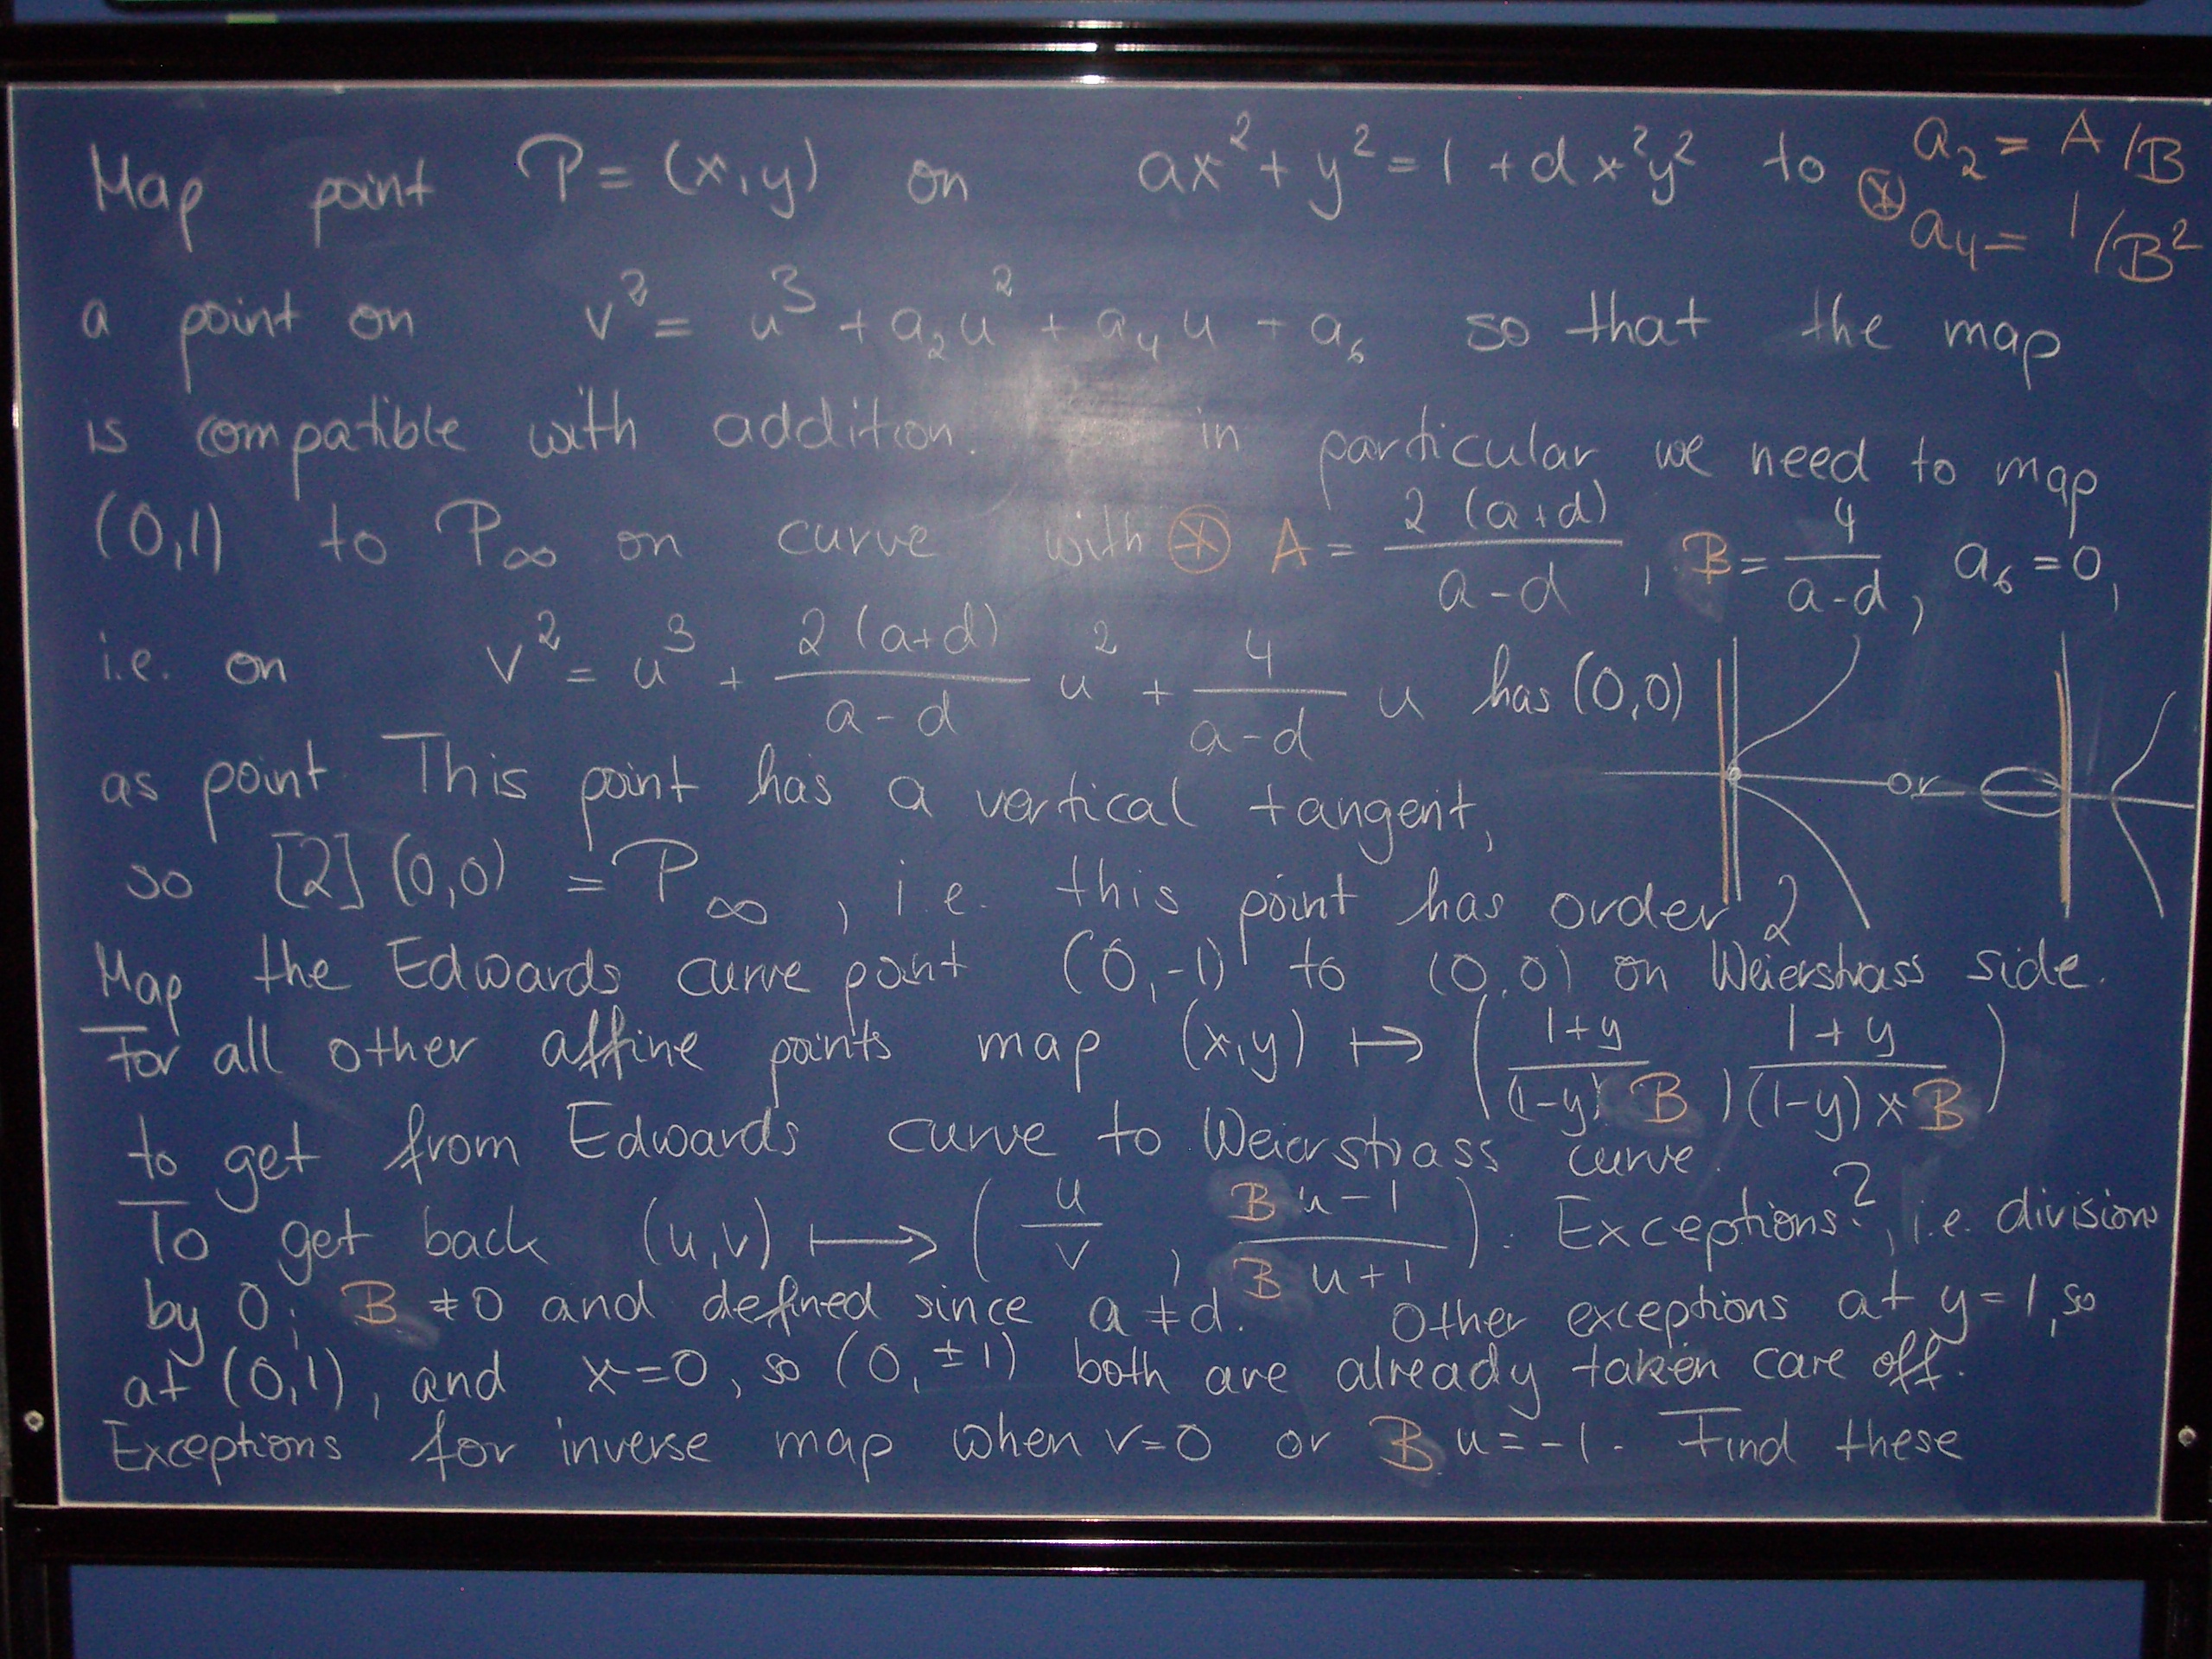 Map point P = (x,y) on ax²+y²=1+dx²y² to ⊛ a₂ = A/B
a₄ = 1/B²
a point on v² = u³ + a₂u² + a₄u + a₆ so that the map
is compatible with addition. in particular we need to map
(0,1) to P∞ on curve with ⊛ A = 2(a+d)/(a-d), B = 4/(a-d), a₆ = 0,
i.e. on v² = u³ + 2(a+d)/(a-d) u² + 4/(a-d) u has (0,0)
as point. This point has a vertical tangent, or
so [2](0,0) = P∞, i.e. this point has order 2
Map the Edwards curve point (0,-1) to (0,0) on Weierstrass side.
For all other affine points map (x,y) ↦ ((1+y)/((1-y)B), (1+y)/((1-y)xB))
to get from Edwards curve to Weierstrass curve.
To get back (u,v) ⟼ (u/v, (Bu-1)/(Bu+1)). Exceptions?, i.e. division
by 0; B ≠ 0 and defined since a ≠ d. Other exceptions at y=1, so
at (0,1), and x=0, so (0,±1) both are already taken care off.
Exceptions for inverse map when v=0 or Bu=-1. Find these